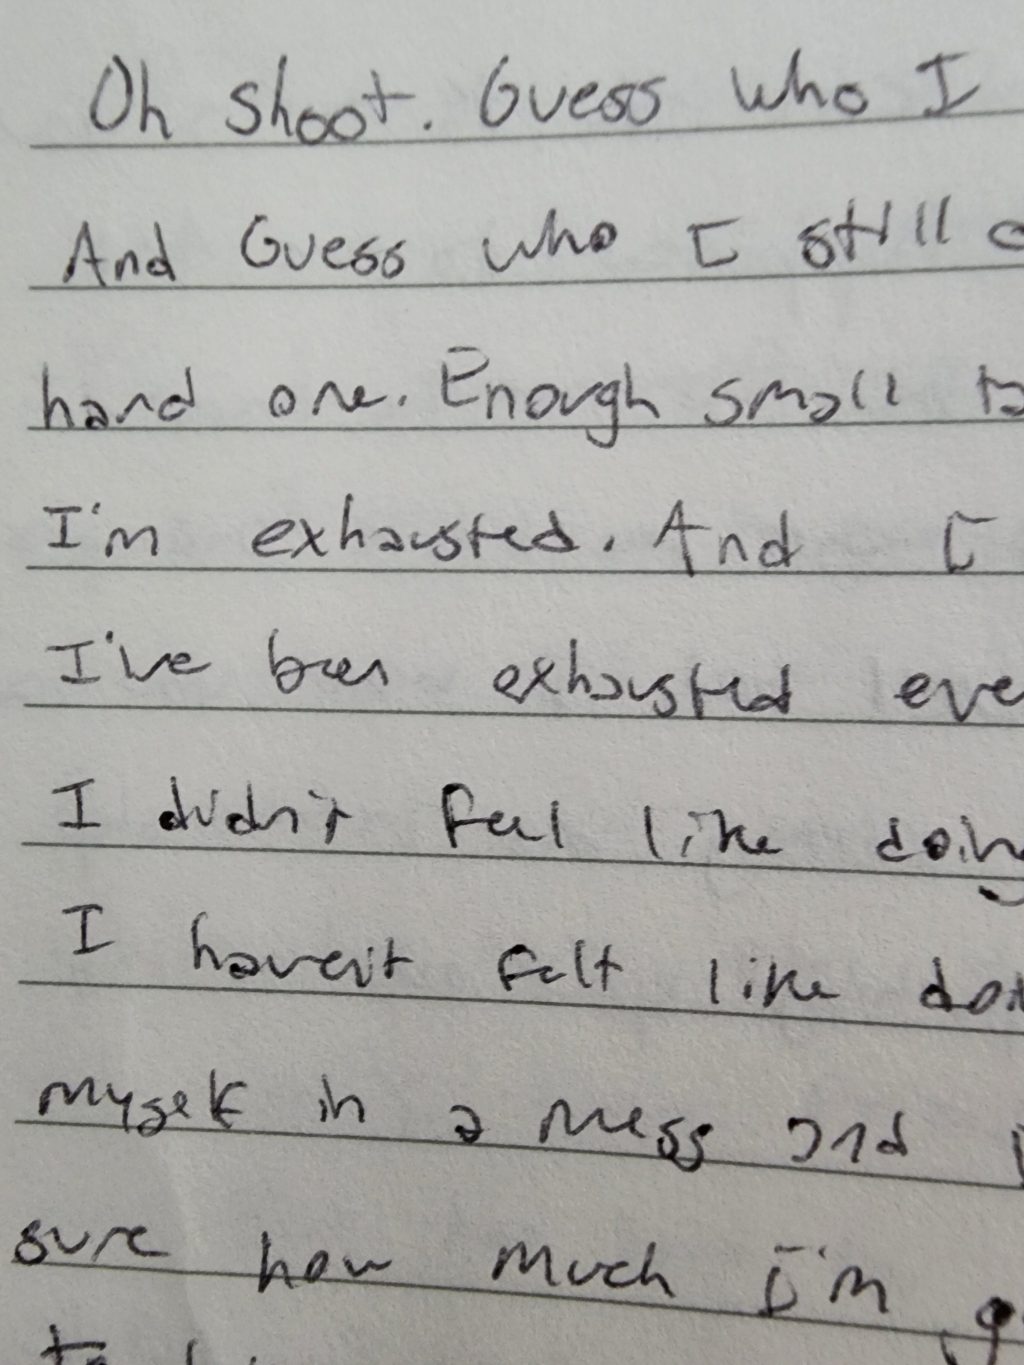 Oh shoot. Guess who I
And Guess who I still
hard one. Enough small
I'm exhausted. And I
I've been exhausted
I didn't feel like doing
I haven't felt like
myself in a mess and
sure how much I'm